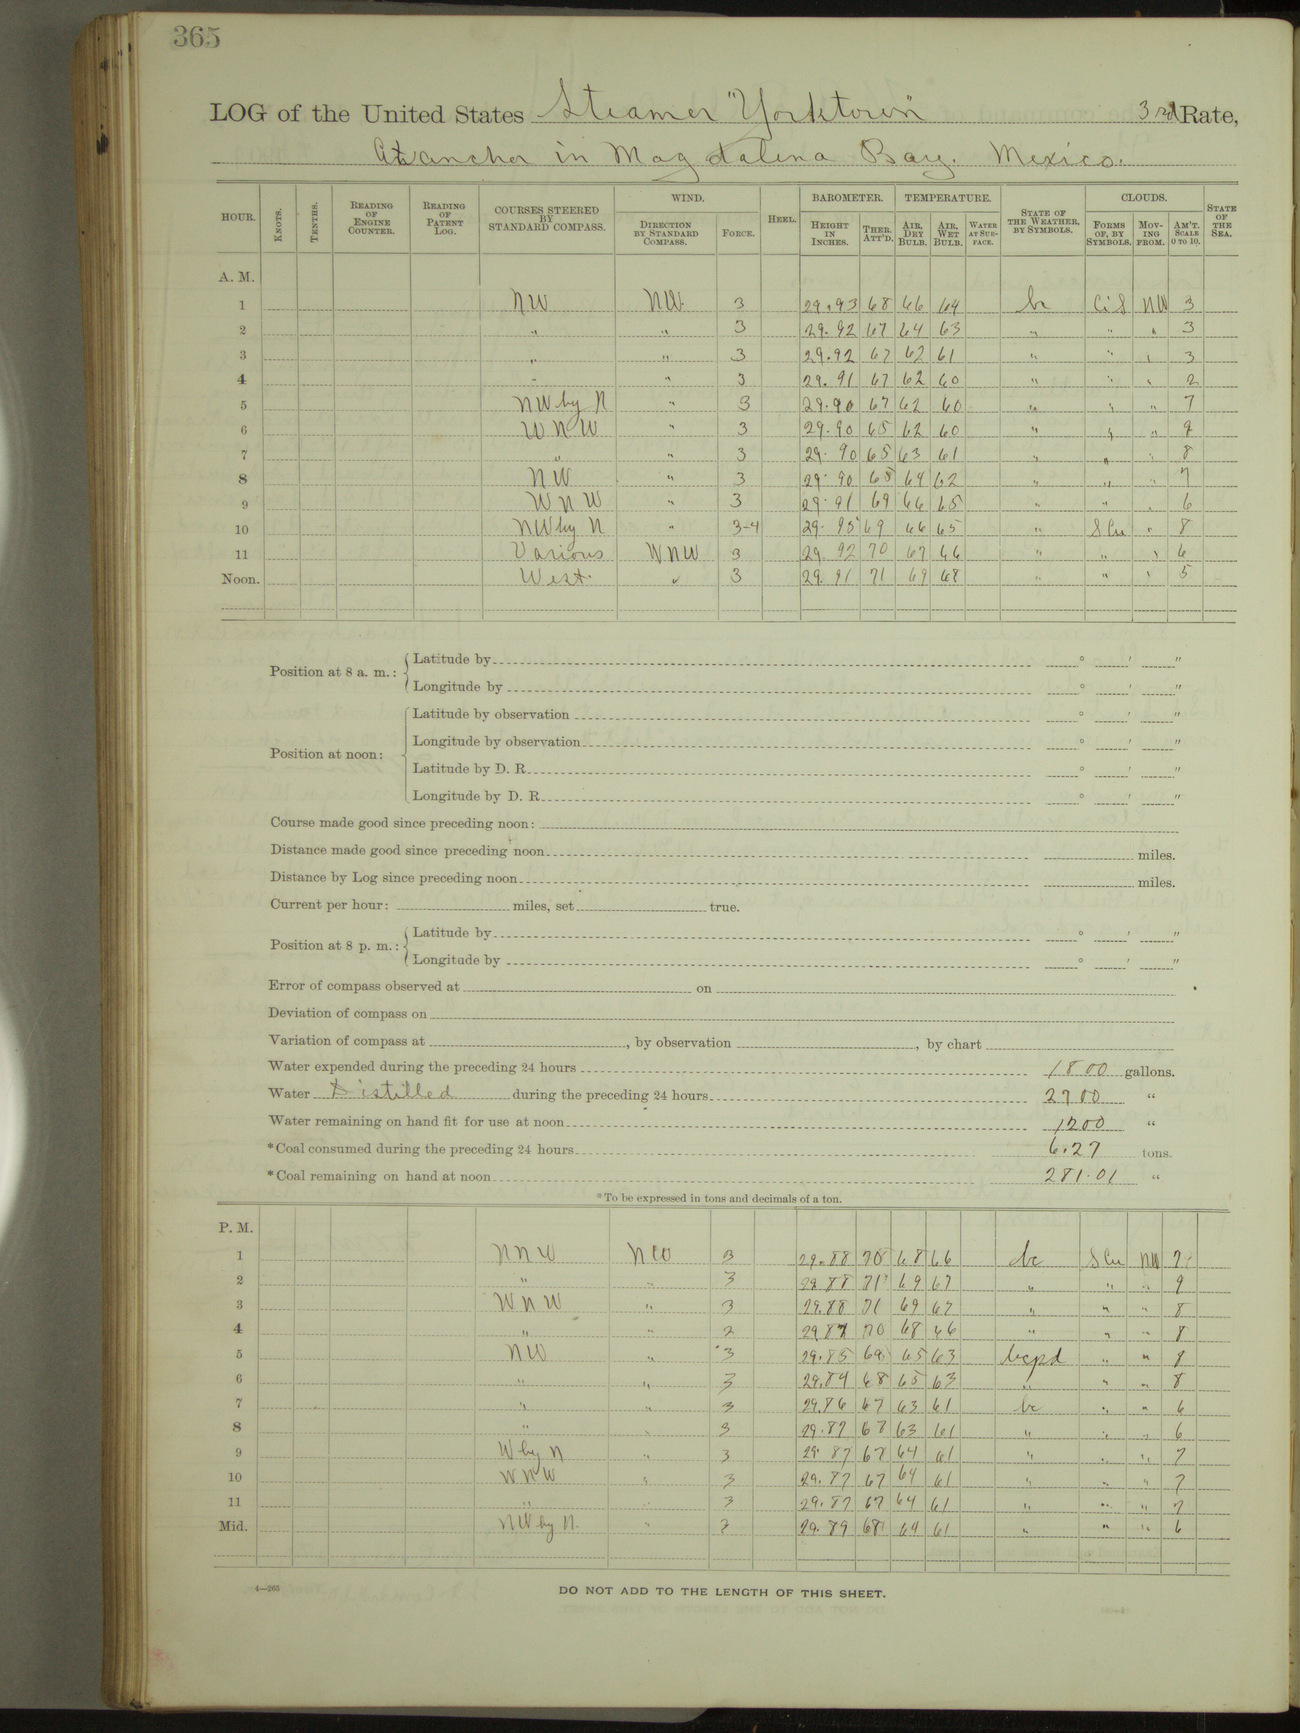 365
LOG of the United States Steamer "Yorktown" 3rd Rate,
At anchor in Magdalena Bay. Mexico.
HOUR. KNOTS. TENTHS. READING OF ENGINE COUNTER. READING OF PATENT LOG. COURSES STEERED BY STANDARD COMPASS. WIND. DIRECTION BY STANDARD COMPASS. FORCE. HEEL. BAROMETER. HEIGHT IN INCHES. THER. ATT'D. TEMPERATURE. AIR, DRY BULB. AIR, WET BULB. WATER AT SURFACE. STATE OF THE WEATHER, BY SYMBOLS. CLOUDS. FORMS OF, BY SYMBOLS. MOVING FROM. AM'T. SCALE 0 TO 10. STATE OF THE SEA.
A. M.
1 NW NW. 3 29.93 68 66 64 bc Ci S NW 3
2 " " 3 29.92 67 64 63 " " " 3
3 " " 3 29.92 67 62 61 " " " 3
4 " " 3 29.91 67 62 60 " " " 2
5 NW by N " 3 29.90 67 62 60 " " " 7
6 WNW " 3 29.90 65 62 60 " " " 9
7 " " 3 29.90 65 63 61 " " " 8
8 NW " 3 29.90 68 64 62 " " " 7
9 WNW " 3 29.91 69 66 65 " " " 6
10 NW by N " 3-4 29.95 69 66 65 " S Cu " 8
11 Various WNW 3 29.92 70 67 66 " " " 6
Noon. West. " 3 29.91 71 69 68 " " " 5
Position at 8 a. m.: Latitude by ° ' "
Longitude by ° ' "
Position at noon: Latitude by observation ° ' "
Longitude by observation ° ' "
Latitude by D. R. ° ' "
Longitude by D. R. ° ' "
Course made good since preceding noon:
Distance made good since preceding noon miles.
Distance by Log since preceding noon miles.
Current per hour: miles, set true.
Position at 8 p. m.: Latitude by ° ' "
Longitude by ° ' "
Error of compass observed at on
Deviation of compass on
Variation of compass at , by observation , by chart
Water expended during the preceding 24 hours 1800 gallons.
Water Distilled during the preceding 24 hours 2700 "
Water remaining on hand fit for use at noon 1200 "
*Coal consumed during the preceding 24 hours 6.27 tons.
*Coal remaining on hand at noon 281.01 "
*To be expressed in tons and decimals of a ton.
P. M.
1 NNW NW 3 29.88 70 68 66 bc S Cu NW 7
2 " " 3 29.88 71 69 67 " " " 9
3 WNW " 3 29.88 71 69 67 " " " 8
4 " " 2 29.87 70 68 66 " " " 8
5 NW " 3 29.85 69 65 63 bcpd " " 8
6 " " 3 29.84 68 65 63 " " " 8
7 " " 3 29.86 67 63 61 bc " " 6
8 " " 3 29.87 67 63 61 " " " 6
9 W by N " 3 29.87 67 64 61 " " " 7
10 WNW " 3 29.87 67 64 61 " " " 7
11 " " 3 29.87 67 64 61 " " " 7
Mid. NW by N. " 2 29.89 68 64 61 " " " 6
4—265
DO NOT ADD TO THE LENGTH OF THIS SHEET.